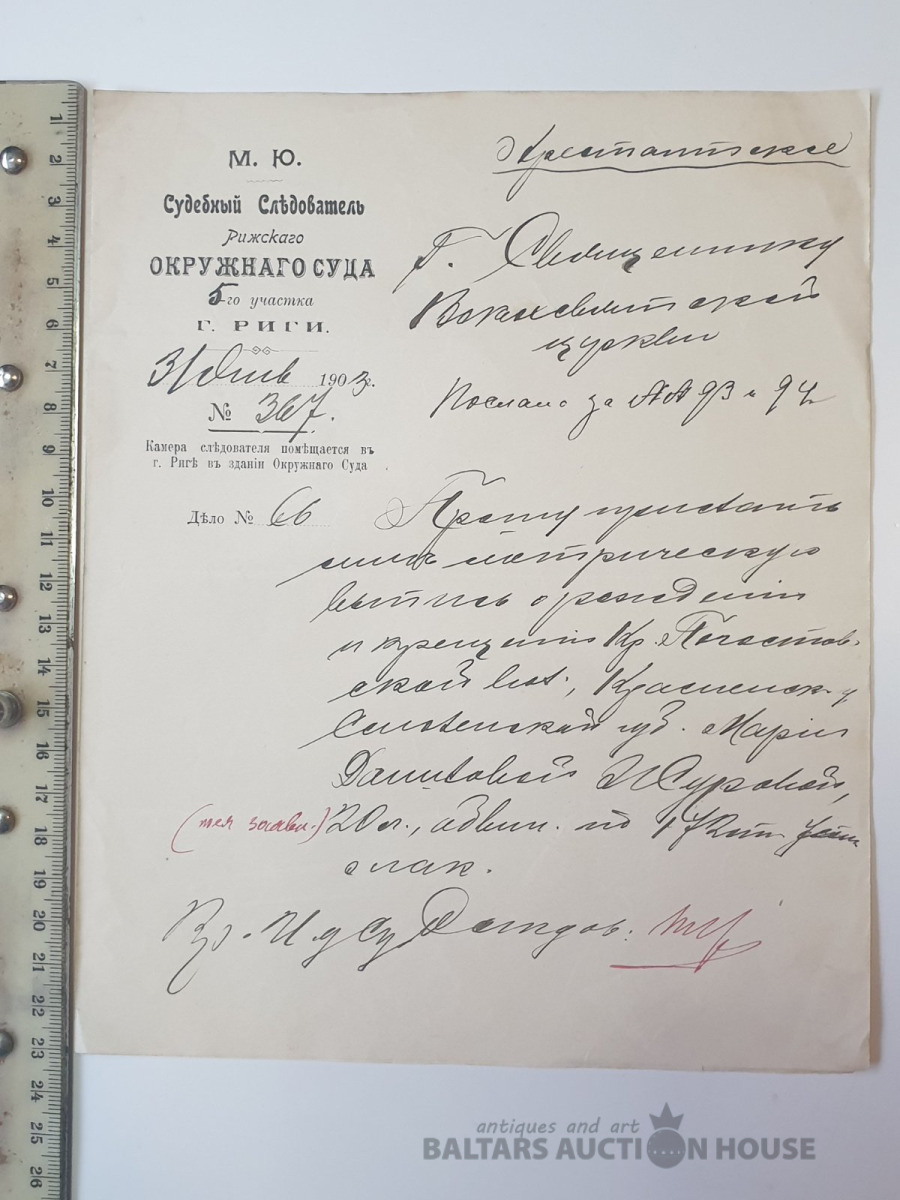 М. Ю.
Судебный Слѣдователь
Рижскаго
ОКРУЖНАГО СУДА
5-го участка
Г. РИГИ.
31 1903 г.
№ 367.
Камера слѣдователя помѣщается въ
г. Ригѣ въ зданіи Окружнаго Суда
Дѣло № 66
Арестантское
Г. Священнику
церкви
Послано за №№ 93 и 94
Прошу прислать
мнѣ метрическую
выпись о рожденіи
и крещеніи Кр.
ской вол., Краснинск. у
Смоленской губ. Маріи
Даниловой Журовой,
20 л., обвин. по ст.
о нак.
1 2 3 4 5 6 7 8 9 10 11 12 13 14 15 16 17 18 19 20 21 22 23 24 25 26
antiques and art
BALTARS AUCTION HOUSE